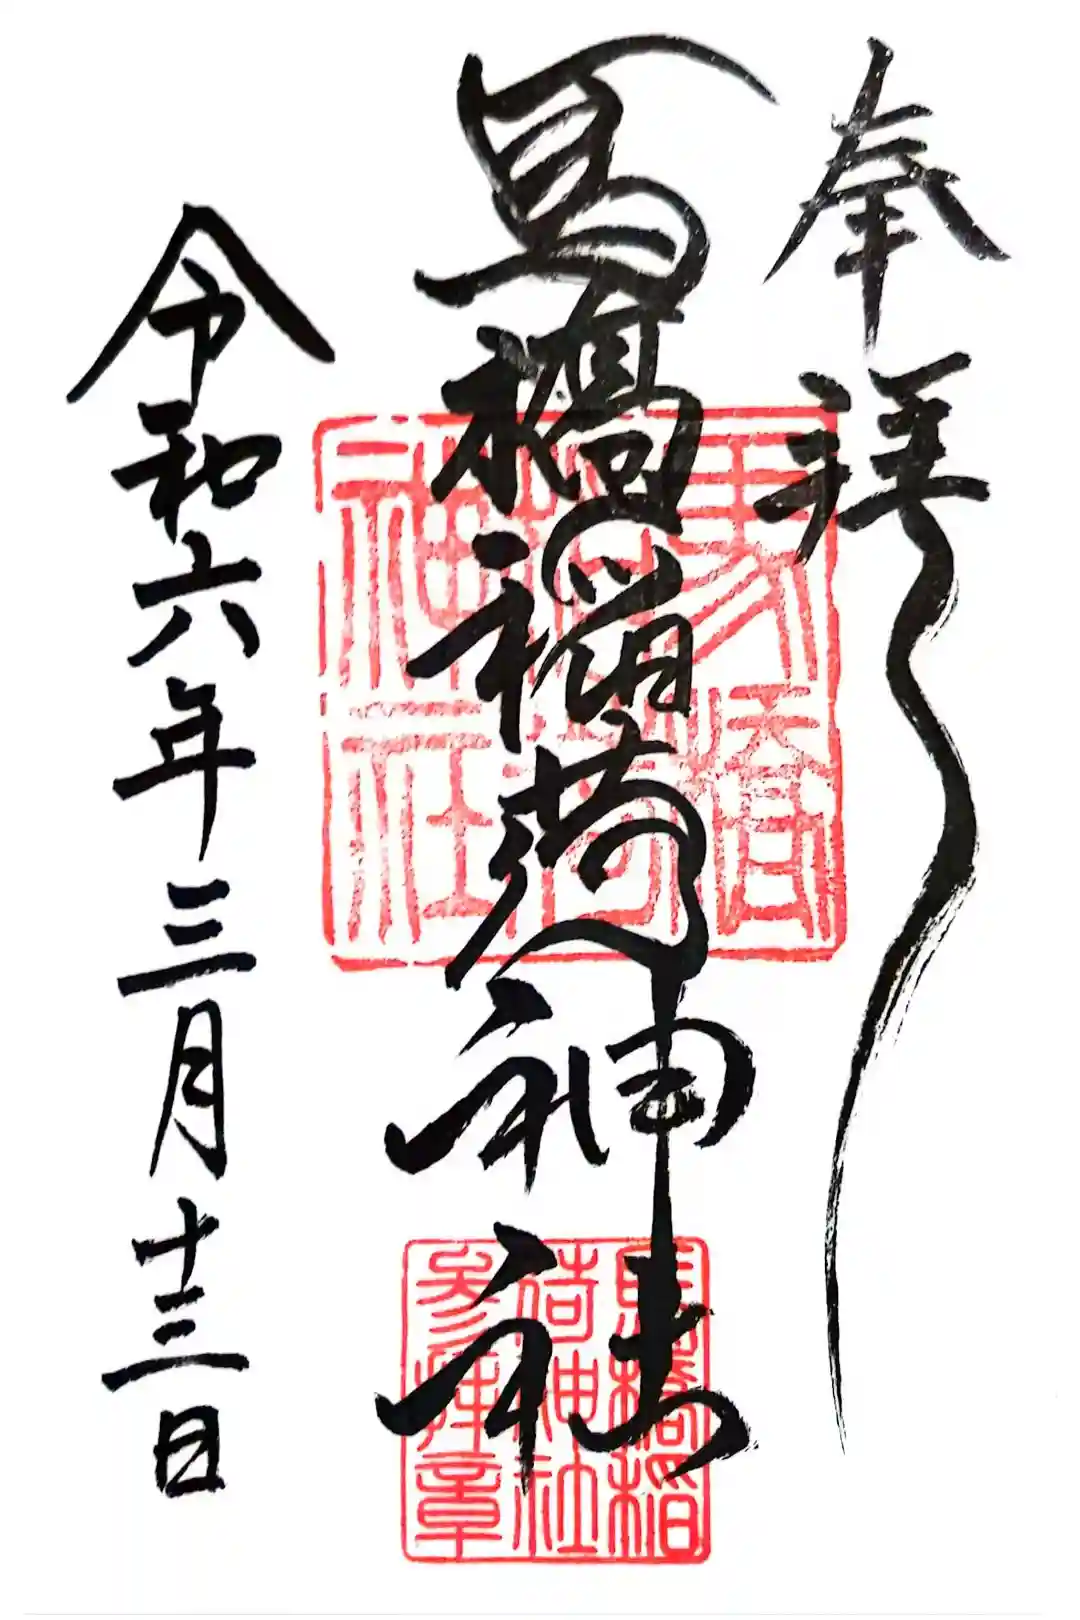 奉拝
馬橋稲荷神社
令和六年三月十三日
馬橋
稲荷
神社
馬橋稲
荷神社
参拝章